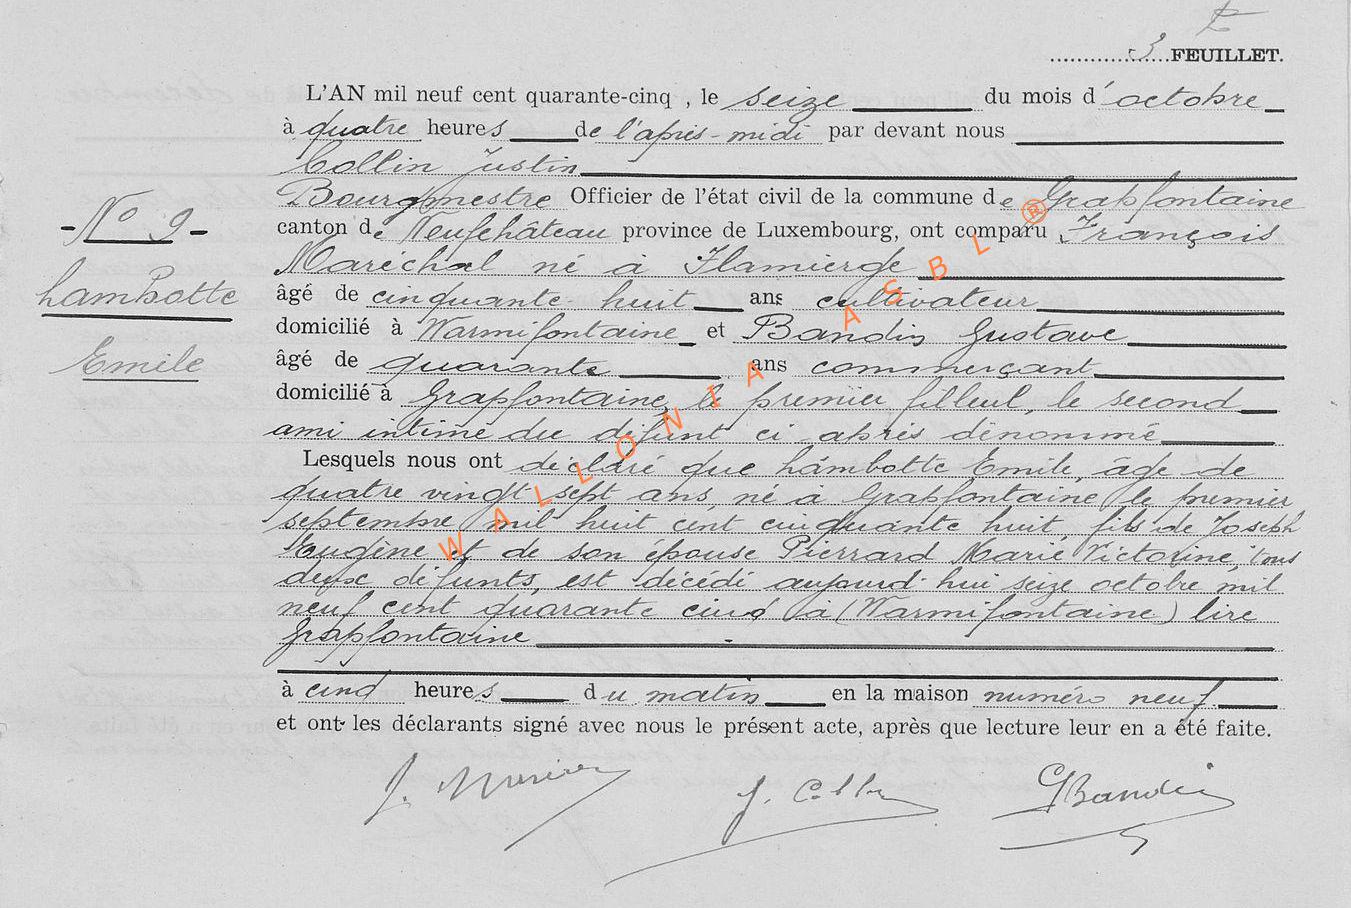 3 FEUILLET.
L'AN mil neuf cent quarante-cinq , le seize du mois d'octobre
à quatre heures de l'après-midi par devant nous
Collin Justin
Bourgmestre Officier de l'état civil de la commune de Grapfontaine
N° 9
canton de Neufchâteau province de Luxembourg, ont comparu François
Maréchal né à Flamierge
Lambotte
âgé de cinquante-huit ans cultivateur
domicilié à Warmifontaine et Bandin Gustave
Emile
âgé de quarante ans commerçant
domicilié à Grapfontaine, le premier filleul, le second
ami intime du défunt ci après dénommé
Lesquels nous ont déclaré que Lambotte Emile, âge de
quatre vingt sept ans, né à Grapfontaine, le premier
septembre mil huit cent cinquante huit, fils de Joseph
Eugène et de son épouse Pierrard Marie Victorine, tous
deux défunts, est décédé aujourd'hui seize octobre mil
neuf cent quarante cinq à (Warmifontaine) lire
Grapfontaine
à cinq heures du matin en la maison numéro neuf.
et ont les déclarants signé avec nous le présent acte, après que lecture leur en a été faite.
J. Collin
GBandin
WALLONIA ASBL ®